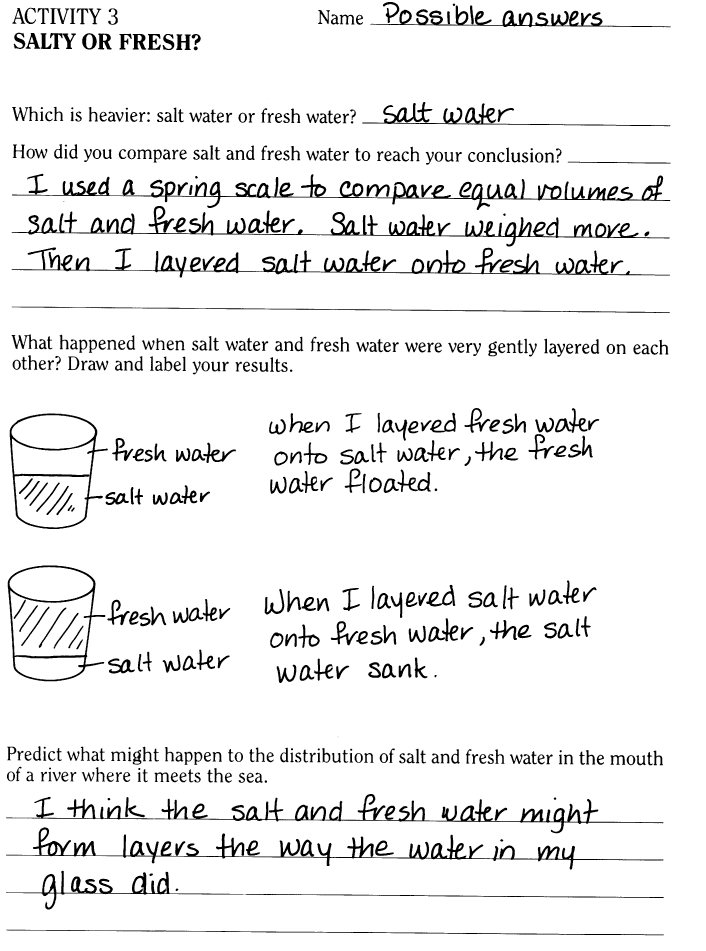 ACTIVITY 3
Name Possible answers
SALTY OR FRESH?
Which is heavier: salt water or fresh water? salt water
How did you compare salt and fresh water to reach your conclusion?
I used a spring scale to compare equal volumes of
salt and fresh water. Salt water weighed more.
Then I layered salt water onto fresh water.
What happened when salt water and fresh water were very gently layered on each
other? Draw and label your results.
fresh water
salt water
when I layered fresh water
onto salt water, the fresh
water floated.
fresh water
salt water
When I layered salt water
onto fresh water, the salt
water sank.
Predict what might happen to the distribution of salt and fresh water in the mouth
of a river where it meets the sea.
I think the salt and fresh water might
form layers the way the water in my
glass did.